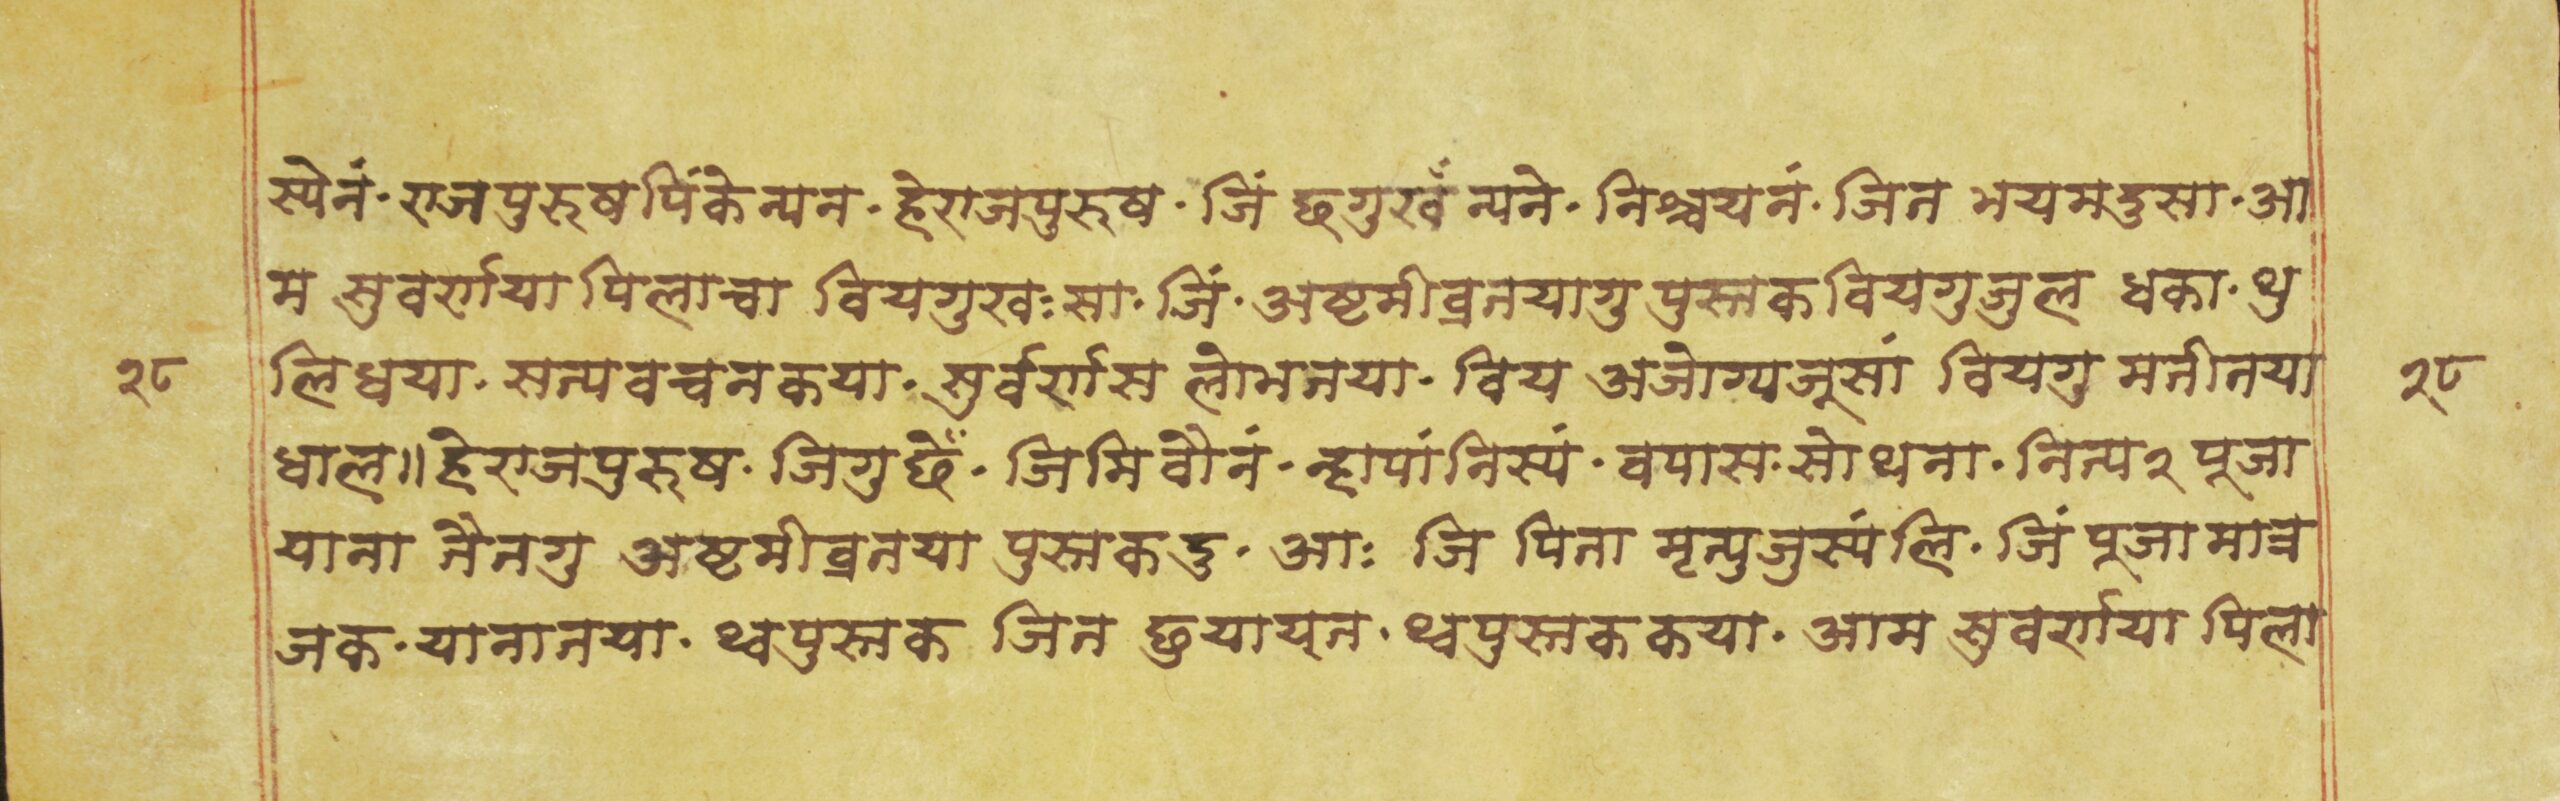 स्येनं· राजपुरुषपिंके न्यन· हेराजपुरुष· जिं छगुखँ न्यने· निश्चयनं· जिन भयमदुसा· आ
म सुवर्र्णया पिलाच्वा वियगुखःसा· जिं· अष्टमीव्रतयागु पुस्तक वियगुजुल धका· थु
२८ लिधया· सत्यवचनकया· सुर्वर्र्णस लोभनया· विय अजोग्यजूसां वियगु मतीतया २८
धाल॥ हेराजपुरुष· जिगु छेँ· जिमि वौनं· न्हापांनिस्यं· वपास· सोथना· नित्य२ पूजा
याना तैतगु अष्टमीव्रतया पुस्तक दु· आः जि पिता मृत्युजुस्यंलि· जिं पूजा मात्र
जक· याना तया· थ्वपुस्तक जित छुयाय्त· थ्वपुस्तककया· आम सुवर्र्णया पिला